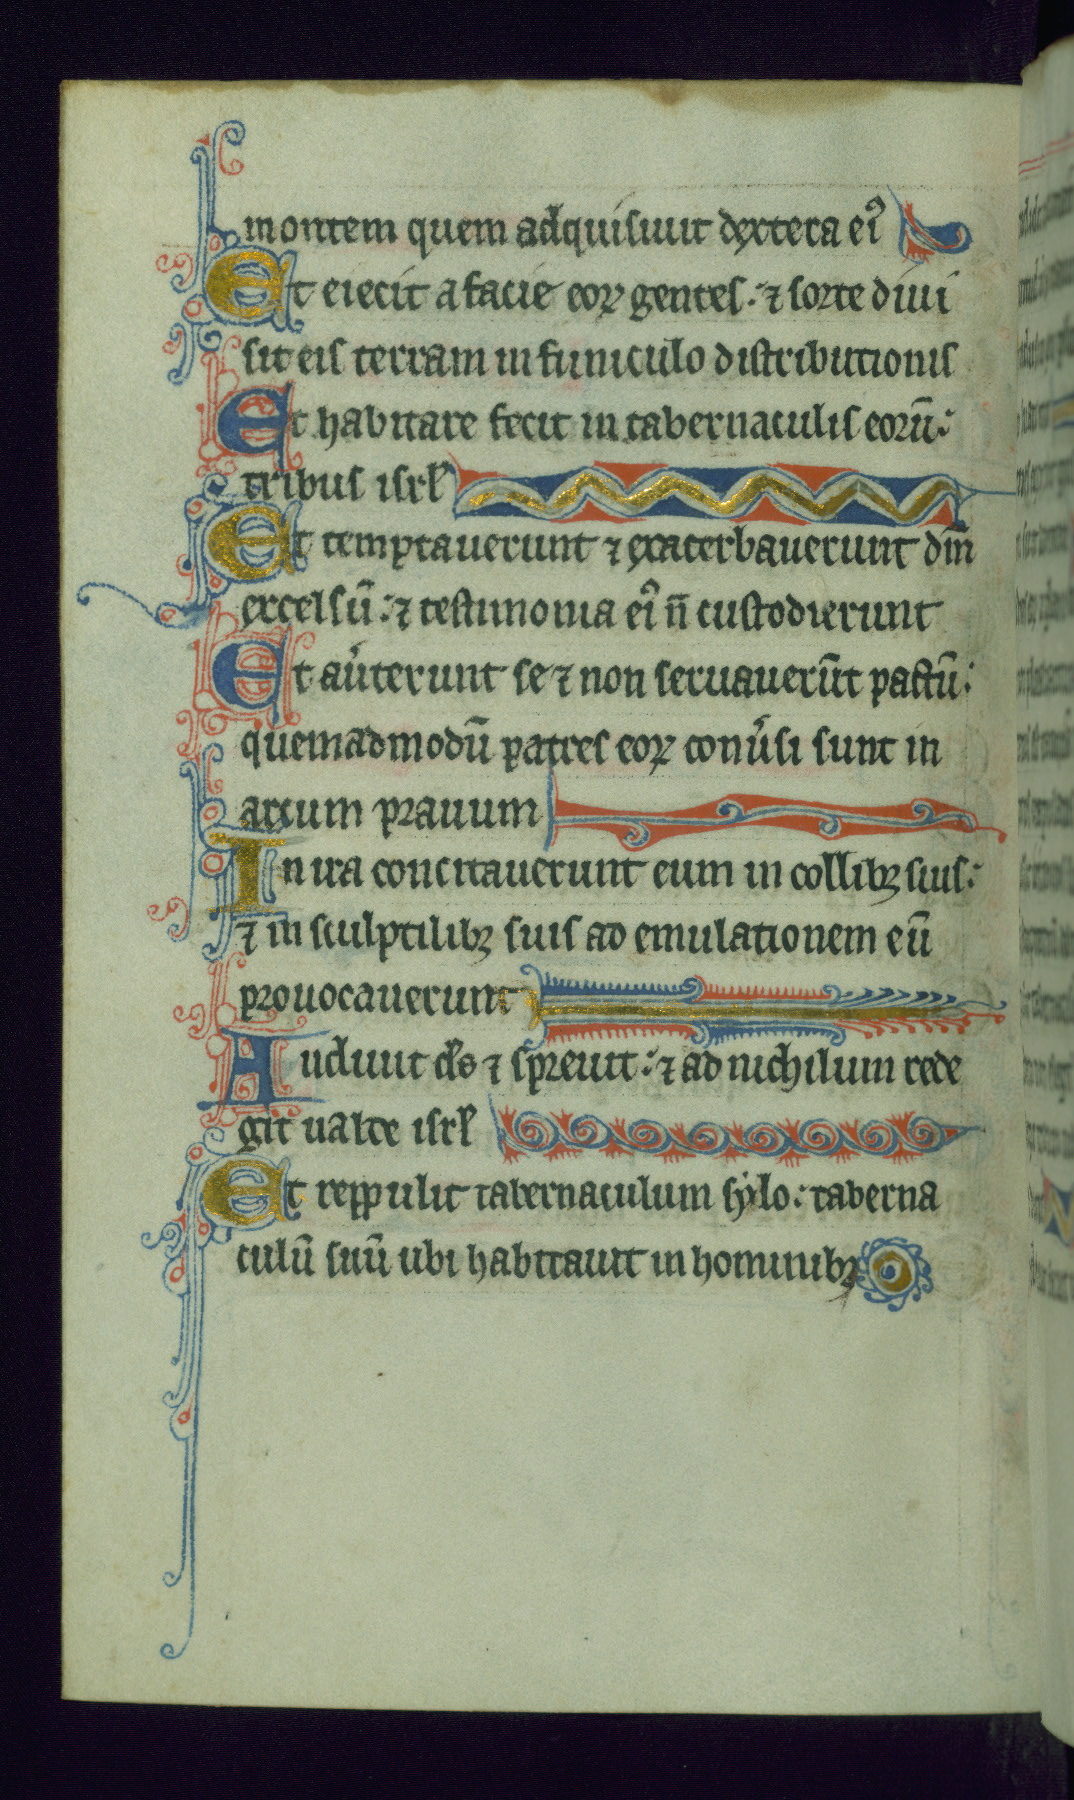 montem quem adquisiuit dextera eiꝰ
Et eiecit a facie eoꝝ gentes : ⁊ sorte diui
sit eis terram in funiculo distributionis
Et habitare fecit in tabernaculis eorū :
tribus isrł
Et temptauerunt ⁊ exacerbauerunt dm̄
excelsū : ⁊ testimonia eiꝰ n̄ custodierunt
Et au̓terunt se ⁊ non seruauerūt pactū :
quemadmodū patres eoꝝ conu̓si sunt in
arcum prauum
In ira concitauerunt eum in collibꝫ suis :
⁊ in sculptilibꝫ suis ad emulationem eū
prouocauerunt
Audiuit ds̄ ⁊ spreuit : ⁊ ad nichilum rede
git ualde isrł
Et reppulit tabernaculum sẏlo : taberna
culū suū ubi habitauit in hominibꝫ